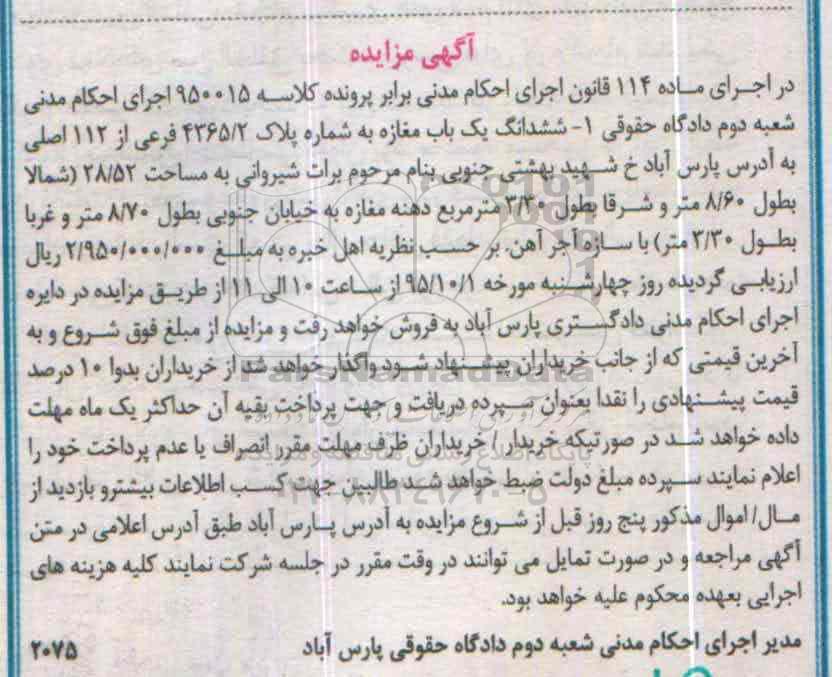 آگهی مزایده
در اجرای ماده ۱۱۴ قانون اجرای احکام مدنی برابر پرونده کلاسه ۹۵۰۰۱۵ اجرای احکام مدنی
شعبه دوم دادگاه حقوقی ۱- ششدانگ یک باب مغازه به شماره پلاک ۴۳۶۵/۲ فرعی از ۱۱۲ اصلی
به آدرس پارس آباد خ شهید بهشتی جنوبی بنام مرحوم برات شیروانی به مساحت ۲۸/۵۲ (شمالا
بطول ۸/۶۰ متر و شرقا بطول ۳/۳۰ مترمربع دهنه مغازه به خیابان جنوبی بطول ۸/۷۰ متر و غربا
بطول ۳/۳۰ متر) با سازه آجر آهن. بر حسب نظریه اهل خبره به مبلغ ۲/۹۵۰/۰۰۰/۰۰۰ ریال
ارزیابی گردیده روز چهارشنبه مورخه ۹۵/۱۰/۱ از ساعت ۱۰ الی ۱۱ از طریق مزایده در دایره
اجرای احکام مدنی دادگستری پارس آباد به فروش خواهد رفت و مزایده از مبلغ فوق شروع و به
آخرین قیمتی که از جانب خریداران پیشنهاد شود واگذار خواهد شد از خریداران بدوا ۱۰ درصد
قیمت پیشنهادی را نقدا بعنوان سپرده دریافت و جهت پرداخت بقیه آن حداکثر یک ماه مهلت
داده خواهد شد در صورتیکه خریدار / خریداران ظرف مهلت مقرر انصراف یا عدم پرداخت خود را
اعلام نمایند سپرده مبلغ دولت ضبط خواهد شد طالبین جهت کسب اطلاعات بیشترو بازدید از
مال/ اموال مذکور پنج روز قبل از شروع مزایده به آدرس پارس آباد طبق آدرس اعلامی در متن
آگهی مراجعه و در صورت تمایل می توانند در وقت مقرر در جلسه شرکت نمایند کلیه هزینه های
اجرایی بعهده محکوم علیه خواهد بود.
مدیر اجرای احکام مدنی شعبه دوم دادگاه حقوقی پارس آباد ۲۰۷۵
ParsNamadData